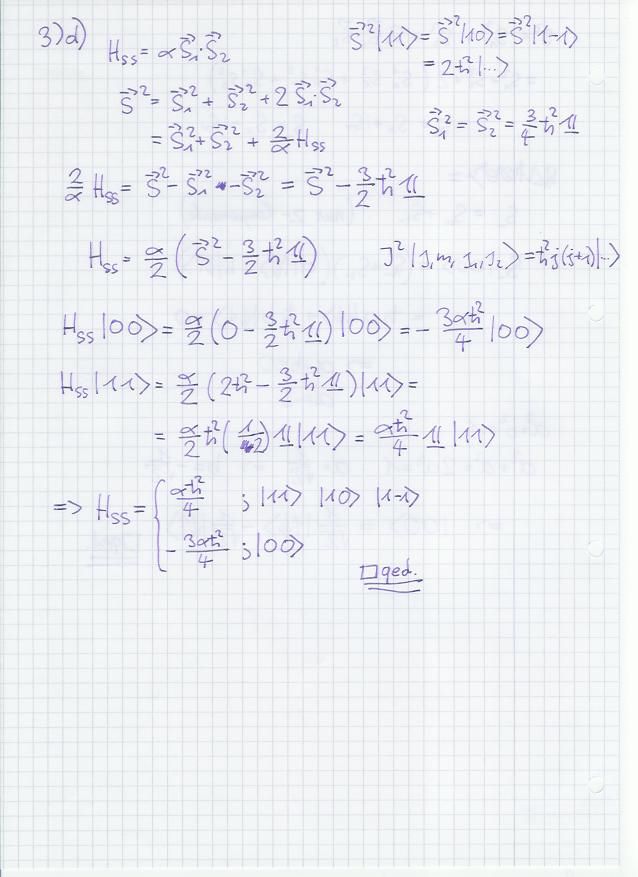 3)d) H_SS = α S⃗₁·S⃗₂ S⃗²|11⟩ = S⃗²|10⟩ = S⃗²|1-1⟩
= 2ħ²|...⟩
S⃗² = S⃗₁² + S⃗₂² + 2 S⃗₁·S⃗₂
= S⃗₁² + S⃗₂² + 2/α H_SS S⃗₁² = S⃗₂² = 3/4 ħ² 1
2/α H_SS = S⃗² - S⃗₁² - S⃗₂² = S⃗² - 3/2 ħ² 1
H_SS = α/2 (S⃗² - 3/2 ħ² 1) J²|J, m, J₁, J₂⟩ = ħ² j(j+1)|...⟩
H_SS|00⟩ = α/2 (0 - 3/2 ħ² 1)|00⟩ = - 3αħ²/4 |00⟩
H_SS|11⟩ = α/2 (2ħ² - 3/2 ħ² 1)|11⟩ =
= α/2 ħ² (1/2) 1|11⟩ = αħ²/4 1|11⟩
=> H_SS = { αħ²/4 ; |11⟩ |10⟩ |1-1⟩
- 3αħ²/4 ; |00⟩
□ qed.